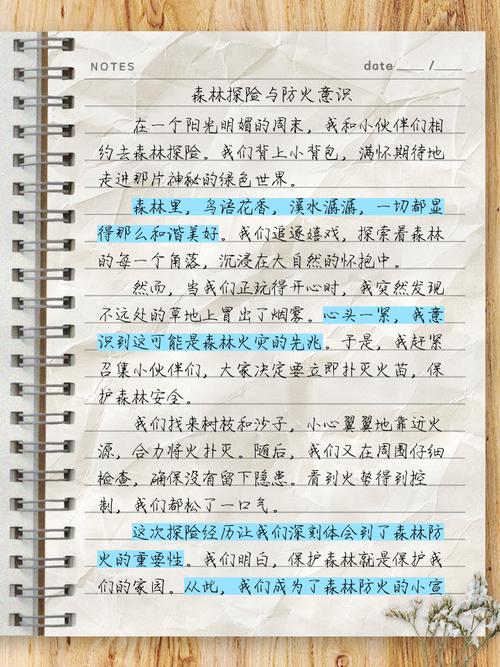 NOTES date____ /____
森林探险与防火意识
在一个阳光明媚的周末，我和小伙伴们相
约去森林探险。我们背上小背包，满怀期待地
走进那片神秘的绿色世界。
森林里，鸟语花香，溪水潺潺，一切都显
得那么和谐美好。我们追逐嬉戏，探索着森林
的每一个角落，沉浸在大自然的怀抱中。
然而，当我们正玩得开心时，我突然发现
不远处的草地上冒出了烟雾。心头一紧，我意
识到这可能是森林火灾的先兆。于是，我赶紧
召集小伙伴们，大家决定要立即扑灭火苗，保
护森林安全。
我们找来树枝和沙子，小心翼翼地靠近火
源，合力将火扑灭。随后，我们又在周围仔细
检查，确保没有留下隐患。看到火势得到控
制，我们都松了一口气。
这次探险经历让我们深刻体会到了森林防
火的重要性。我们明白，保护森林就是保护我
们的家园。从此，我们成为了森林防火的小宣